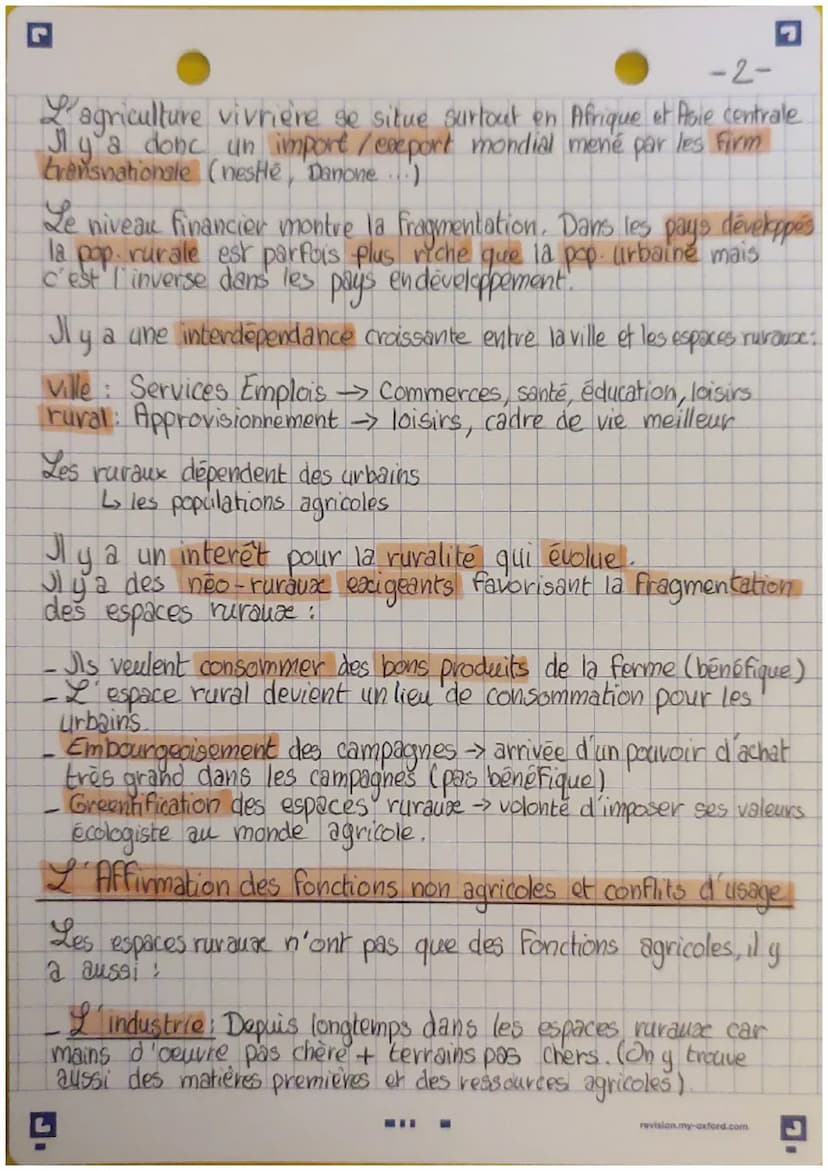 -2-
L'agriculture vivrière se situe surtout en Afrique et Asie centrale
Il y'a donc un import/export mondial mené par les firm
transnationale (nestlé, Danone ...)
Le niveau financier montre la fragmentation. Dans les pays développés
la pop. rurale est parfois plus riche que la pop. urbaine mais
c'est l'inverse dans les pays en développement.
Il y a une interdépendance croissante entre la ville et les espaces ruraux :
Ville : Services Emplois → Commerces, santé, éducation, loisirs
rural : Approvisionnement → loisirs, cadre de vie meilleur
Les ruraux dépendent des urbains
↳ les populations agricoles
Il y a un interêt pour la ruralité qui évolue.
Il y'a des néo-ruraux exigeants favorisant la fragmentation
des espaces ruraux :
- Ils veulent consommer des bons produits de la ferme (bénéfique)
- L'espace rural devient un lieu de consommation pour les
urbains.
- Embourgeoisement des campagnes → arrivée d'un pouvoir d'achat
très grand dans les campagnes (pas bénéfique)
- Greentification des espaces ruraux → volonté d'imposer ses valeurs
écologiste au monde agricole.
L'Affirmation des fonctions non agricoles et conflits d'usage
Les espaces ruraux n'ont pas que des fonctions agricoles, il y
a aussi :
- L'industrie : Depuis longtemps dans les espaces ruraux car
mains d'oeuvre pas chère + terrains pas chers. (On y trouve
aussi des matières premières et des ressources agricoles).
revision.my-oxford.com